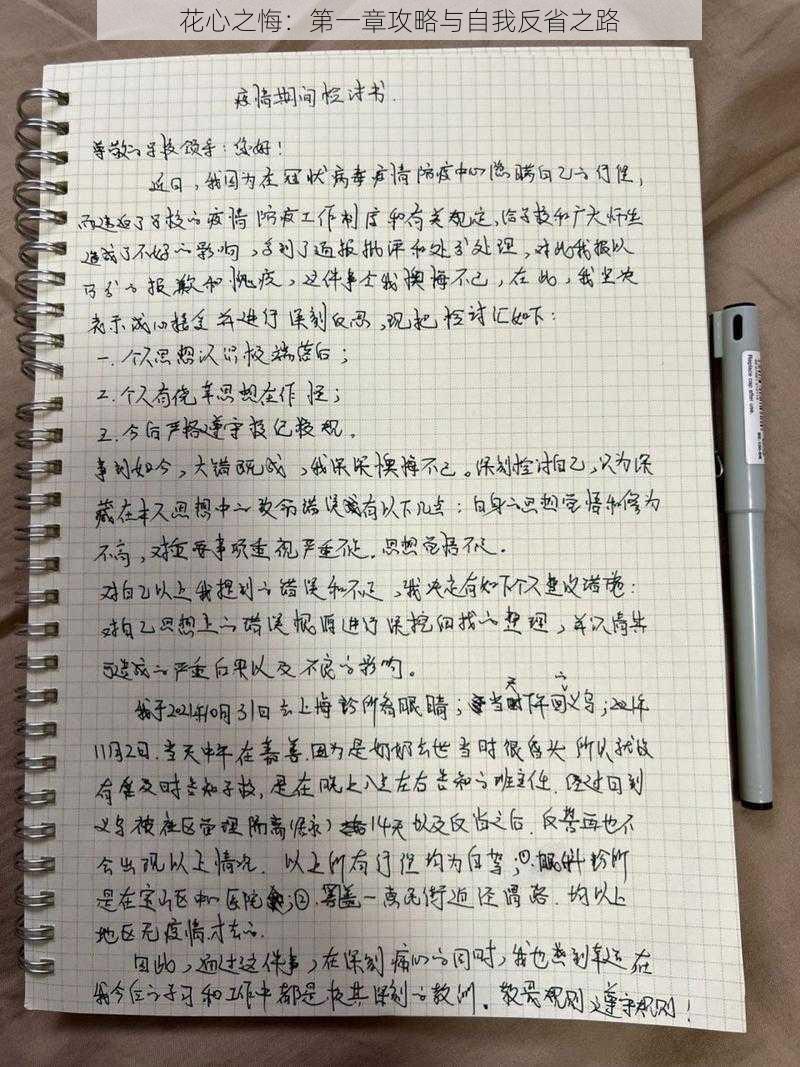 花心之悔：第一章攻略与自我反省之路
疫情期间检讨书.
尊敬的学校领导：您好！
近日，我因为在冠状病毒疫情防疫中心隐瞒自己的行程，
而违返了学校的疫情防疫工作制度和有关规定，给学校和广大师生
造成了不好的影响，受到了通报批评和处分处理，对此我报以
万分的报歉和愧疚，这件事令我懊悔不已，在此，我坚决
表示诚心接受并进行深刻反思，现把检讨汇如下：
一.个人思想认识极端落后；
2.个人有侥幸思想在作怪；
3.今后严格遵守校纪校规。
事到如今，大错既成，我深深懊悔不已。深刻检讨自己，认为深
藏在本人思想中的致命错误有以下几点：自身的思想觉悟和修为
不高，对重要事项重视严重不足.思想觉悟不足.
对自己以上我提到的错误和不足，我决定有如下个人整改措施：
对自己思想上的错误根源进行深挖细找的整理，并认清其
可造成的严重后果以及不良的影响。
我于2021年10月31日去上海诊所看眼睛；当天下午回义乌；2021年
11月2日.当天中午在嘉善.因为是奶奶去世当时很昏头 所以就没
有准及时告知学校，是在晚上八点左右告知的班主任.经过回到
义乌被社区管理隔离(居家)14天以及反省之后.反誓再也不
会出现以上情况.以上所有行程均为自驾；①.眼科诊所
是在宝山区中心医院；②.嘉善一惠民街道泾隆路.均以上
地区无疫情才去的.
因此，通过这件事，在深刻痛心的同时，我也感到幸运 在
我今后的学习和工作中都是极其深刻的教训。敬畏规则 遵守规则！
Replace cap after use.